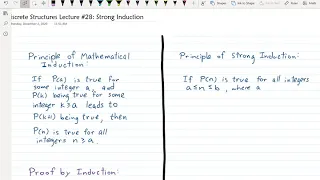 iscrete Structures Lecture #28: Strong Induction
Principle of Mathematical
Induction:
If P(a) is true for
some integer a, and
P(k) being true for some
integer k≥a leads to
P(k+1) being true, then
P(n) is true for all
integers n≥a.
Proof by Induction:
Principle of Strong Induction:
If P(n) is true for all integers
a≤n≤b, where a